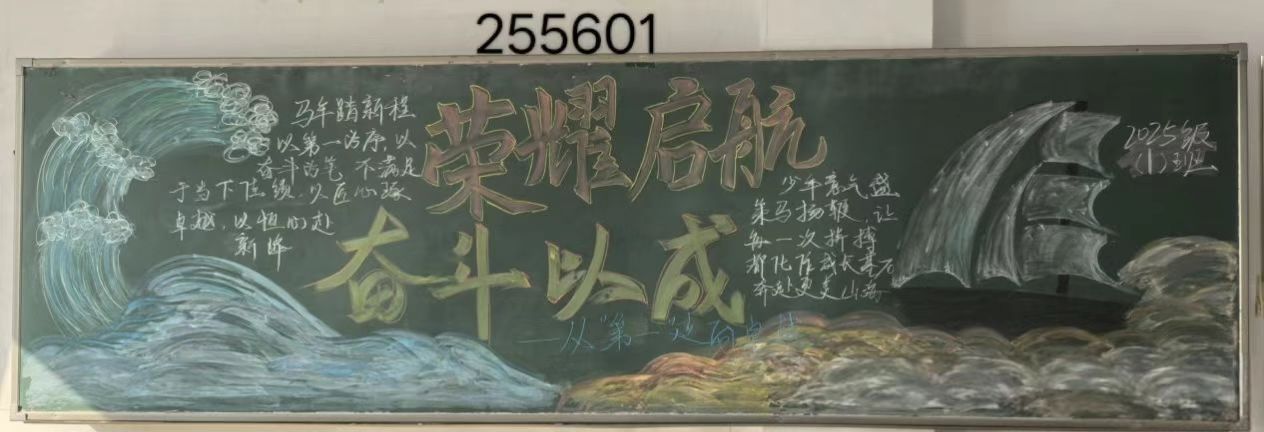 255601
荣耀启航
奋斗以成
——从"第一"走向卓越
马年踏新程
以第一为序,以
奋斗为笔 不满足
于当下成绩,以匠心琢
卓越,以恒心赴
新峰
少年意气盛
策马扬鞭,让
每一次拼搏
都化作成长基石
奔赴更美山海
2025级
班